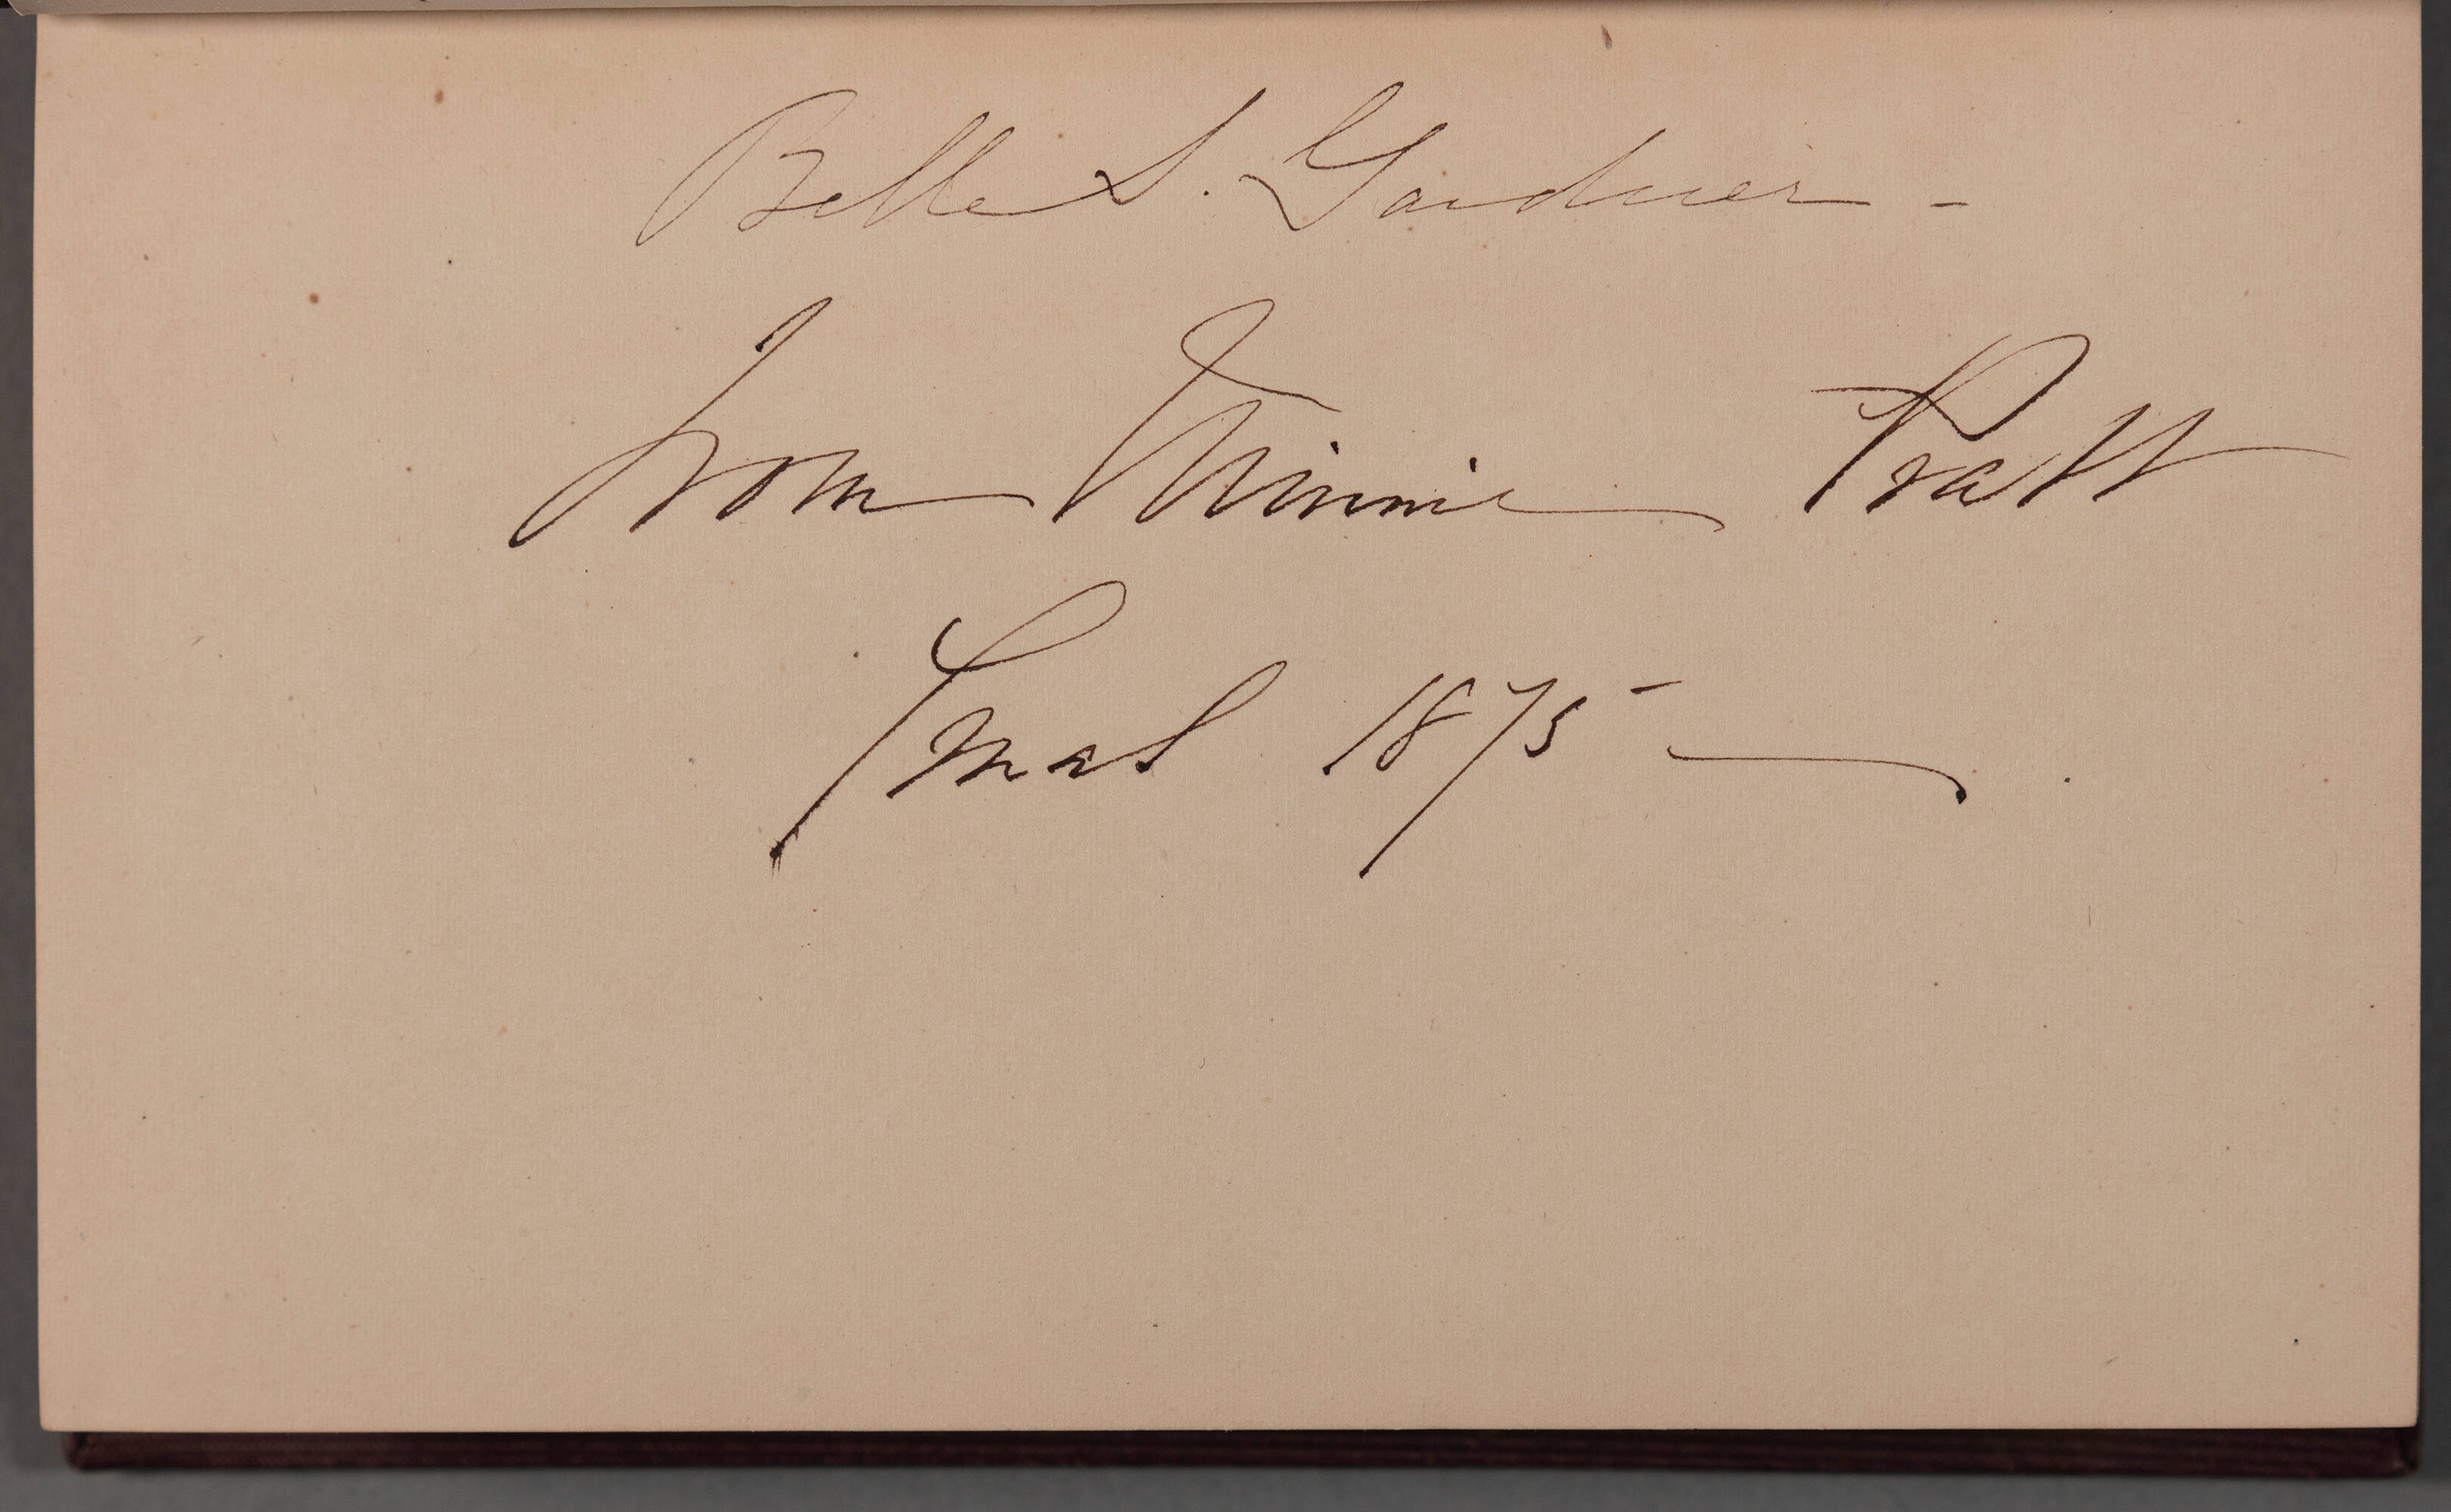 Belle S. Gardner -
from Minnie Pratt
1875